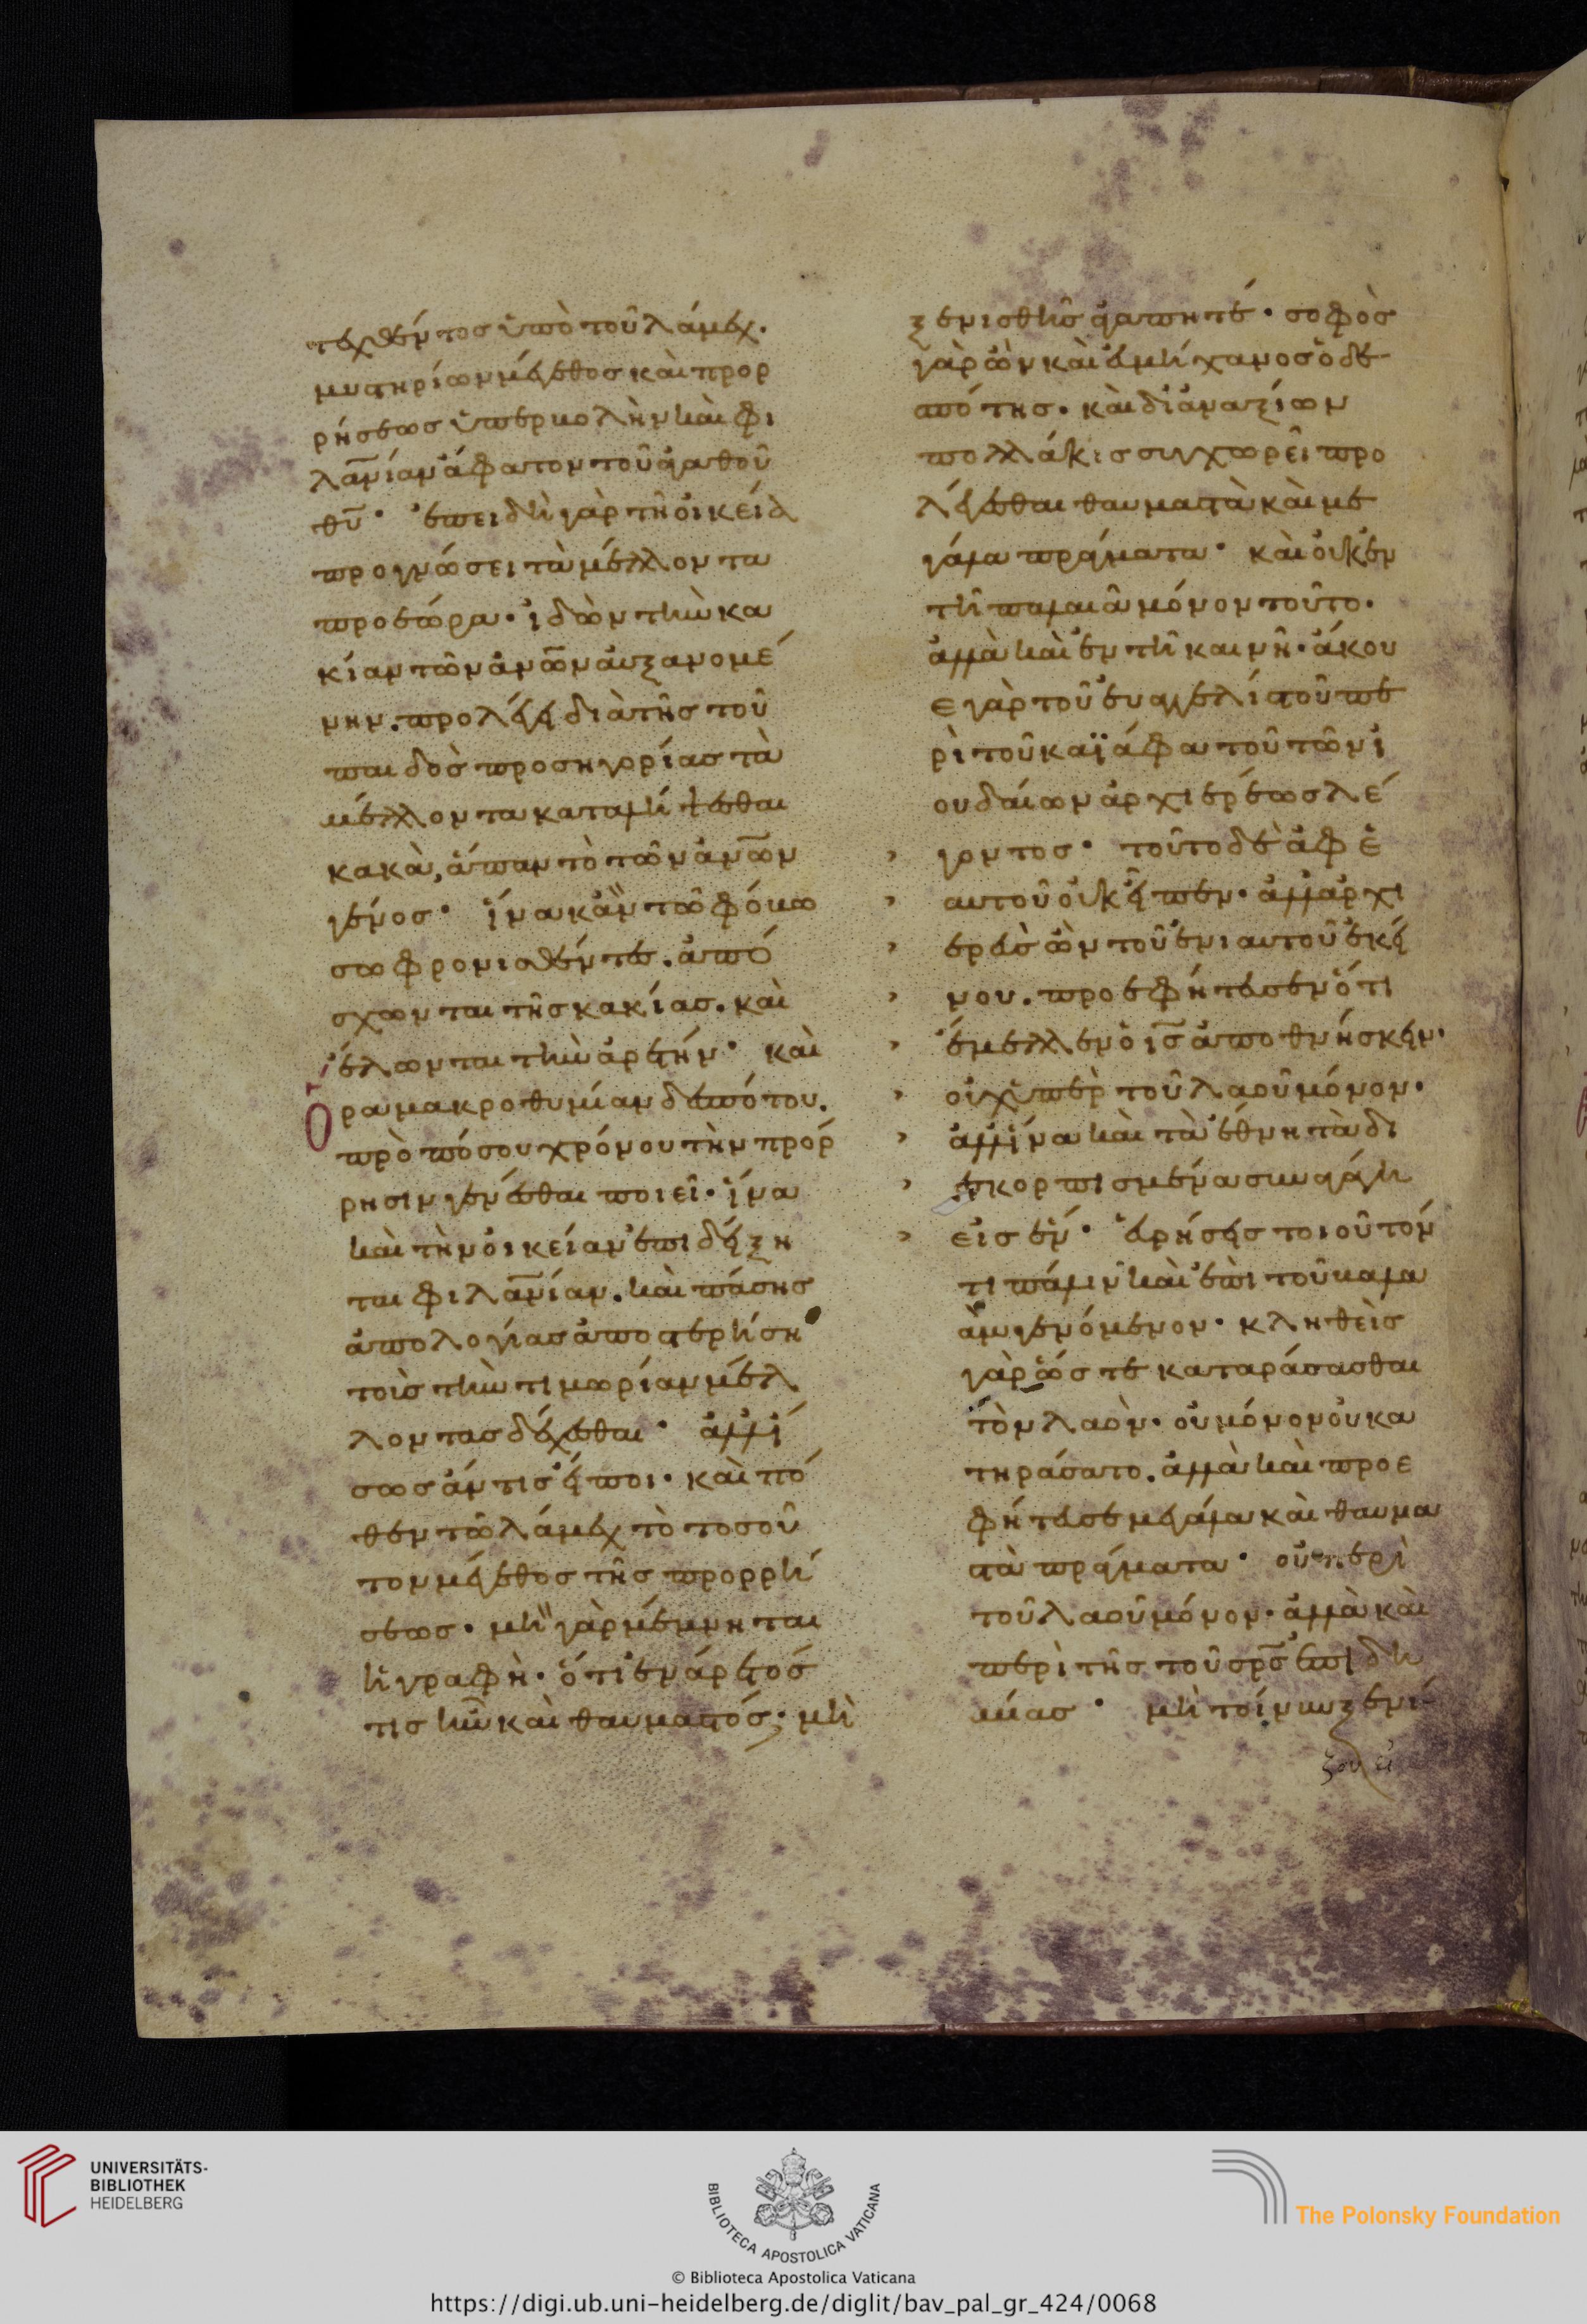 τεχθέντος ὑπὸ τοῦ λάμεχ.
μυστηρίων μέγεθος καὶ προρ
ρήσεως ὑπερβολὴν καὶ φι
λανίαν ἄφατον τοῦ ἀγαθοῦ
θυ· ἐπειδὴ γὰρ τῆ οἰκεία
προγνώσει τὰ μέλλοντα
προεώρα· ἰδὼν τὴν κα
κίαν τῶν ἀνων αὐξανομέ
νην. προλέγει διὰ τῆς τοῦ
παιδὸς προσηγορίας τὰ
μέλλοντα καταλήψεσθαι
κακὰ, ἅπαν τὸ τῶν ἀνων
γένος· ἵνα κἂν τῶ φόβω
σωφρονισθέντες. ἀπό
σχωνται τῆς κακίας. καὶ
ἕλωνται τὴν ἀρετήν· καὶ
ὅρα μακροθυμίαν δεσπότου.
πρὸ πόσου χρόνου τὴν πρόρ
ρησιν γενέσθαι ποιεῖ· ἵνα
καὶ τὴν οἰκείαν ἐπιδείξη
ται φιλανίαν. καὶ πάσης
ἀπολογίας ἀποστερήση
τοὺς τὴν τιμωρίαν μέλ
λοντας δέχεσθαι· ἀλλ' ἴ
σως ἄν τις εἴποι· καὶ πό
θεν τῶ λάμεχ τὸ τοσοῦ
τον μέγεθος τῆς προρρή
σεως· μὴ γὰρ μέμνηται
ἡ γραφὴ· ὅτι ἐνάρετός
τις ἦν καὶ θαυμαστός; μὴ
ξενισθῆς ἀγαπητέ· σοφὸς
γὰρ ὢν καὶ εὐμήχανος ὁ δε
σπότης· καὶ δι' ἀναξίων
πολλάκις συγχωρεῖ προ
λέγεσθαι θαυμαστὰ καὶ με
γάλα πράγματα· καὶ οὐκ ἐν
τῆ παλαιᾶ μόνον τοῦτο·
ἀλλὰ καὶ ἐν τῆ καινῆ· ἄκου
ε γὰρ τοῦ εὐαγγελιστοῦ πε
ρὶ τοῦ καϊάφα τοῦ τῶν ἰ
ουδαίων ἀρχιερέως λέ
γοντος· τοῦτο δὲ ἀφ' ἑ
αυτοῦ οὐκ εἶπεν· ἀλλ' ἀρχι
ερεὺς ὢν τοῦ ἐνιαυτοῦ ἐκεί
νου. προεφήτευσεν ὅτι
ἔμελλεν ὁ ις ἀποθνήσκειν·
οὐχ ὑπὲρ τοῦ λαοῦ μόνον·
ἀλλ' ἵνα καὶ τὰ ἔθνη τὰ δι
εσκορπισμένα συναγάγη
εἰς ἕν· εὑρήσεις τοιοῦτόν
τι πάλιν καὶ ἐπὶ τοῦ βαλα
ὰμ γενόμενον· κληθεὶς
γὰρ ὥστε καταράσασθαι
τὸν λαὸν· οὐ μόνον οὐ κα
τηράσατο. ἀλλὰ καὶ προε
φήτευσε μεγάλα καὶ θαυμα
στὰ πράγματα· οὐ περὶ
τοῦ λαοῦ μόνον· ἀλλὰ καὶ
περὶ τῆς τοῦ σρς ἐπιδη
μίας· μὴ τοίνυν ξενί
ζου εἰ
UNIVERSITÄTS-
BIBLIOTHEK
HEIDELBERG
BIBLIOTECA APOSTOLICA VATICANA
The Polonsky Foundation
© Biblioteca Apostolica Vaticana
https://digi.ub.uni-heidelberg.de/diglit/bav_pal_gr_424/0068